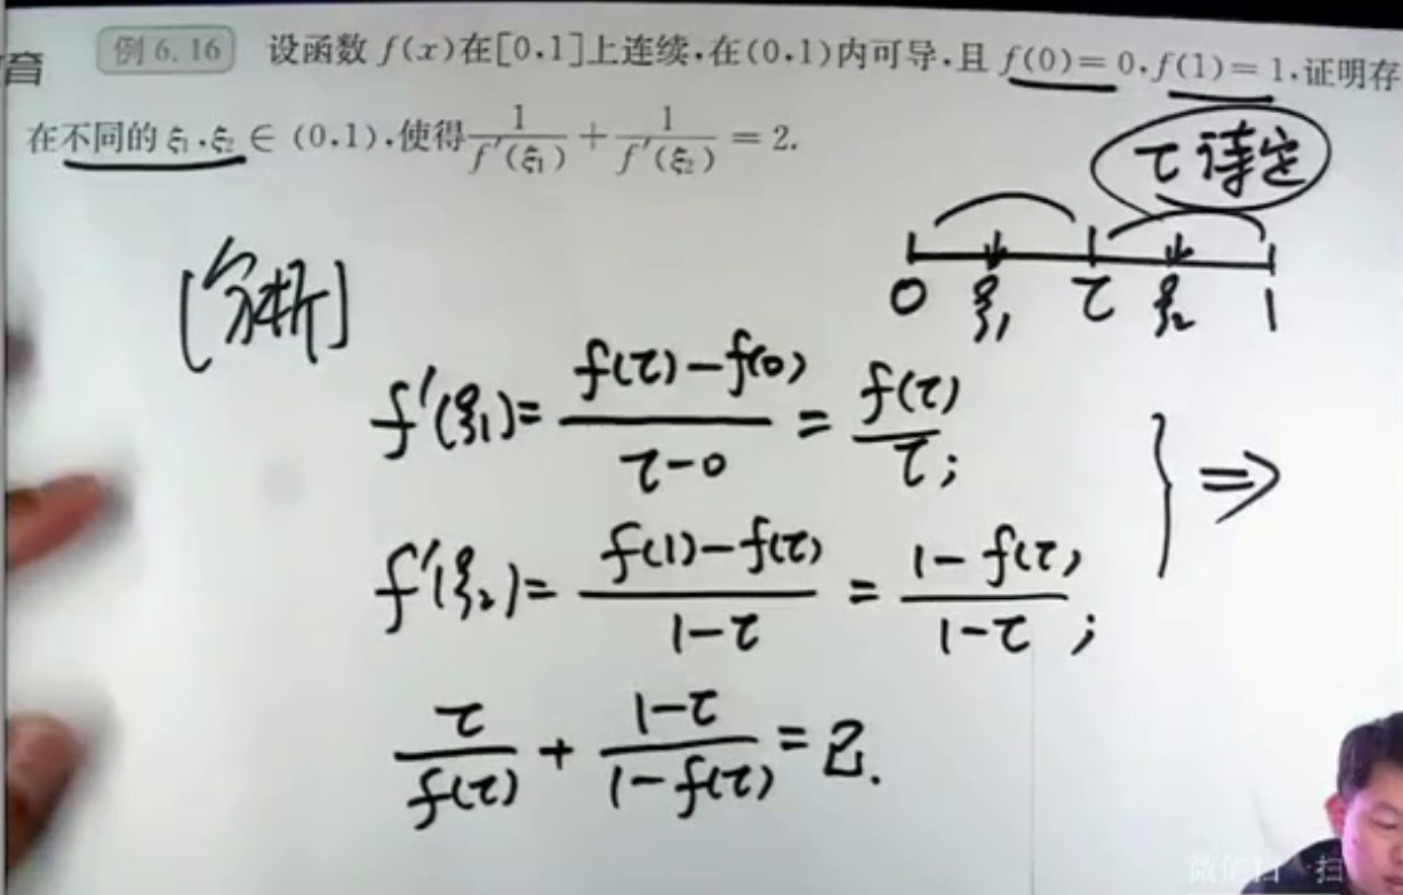 育
例 6.16 设函数 f(x)在[0,1]上连续,在(0,1)内可导,且 f(0)=0,f(1)=1,证明存
在不同的 ξ₁,ξ₂∈(0,1),使得 1/f′(ξ₁) + 1/f′(ξ₂) = 2.
τ待定
0 ξ₁ τ ξ₂ 1
[分析]
f′(ξ₁)= (f(τ)−f(0))/(τ−0) = f(τ)/τ;
} ⇒
f′(ξ₂)= (f(1)−f(τ))/(1−τ) = (1−f(τ))/(1−τ);
τ/f(τ) + (1−τ)/(1−f(τ)) = 2.
微信扫一扫